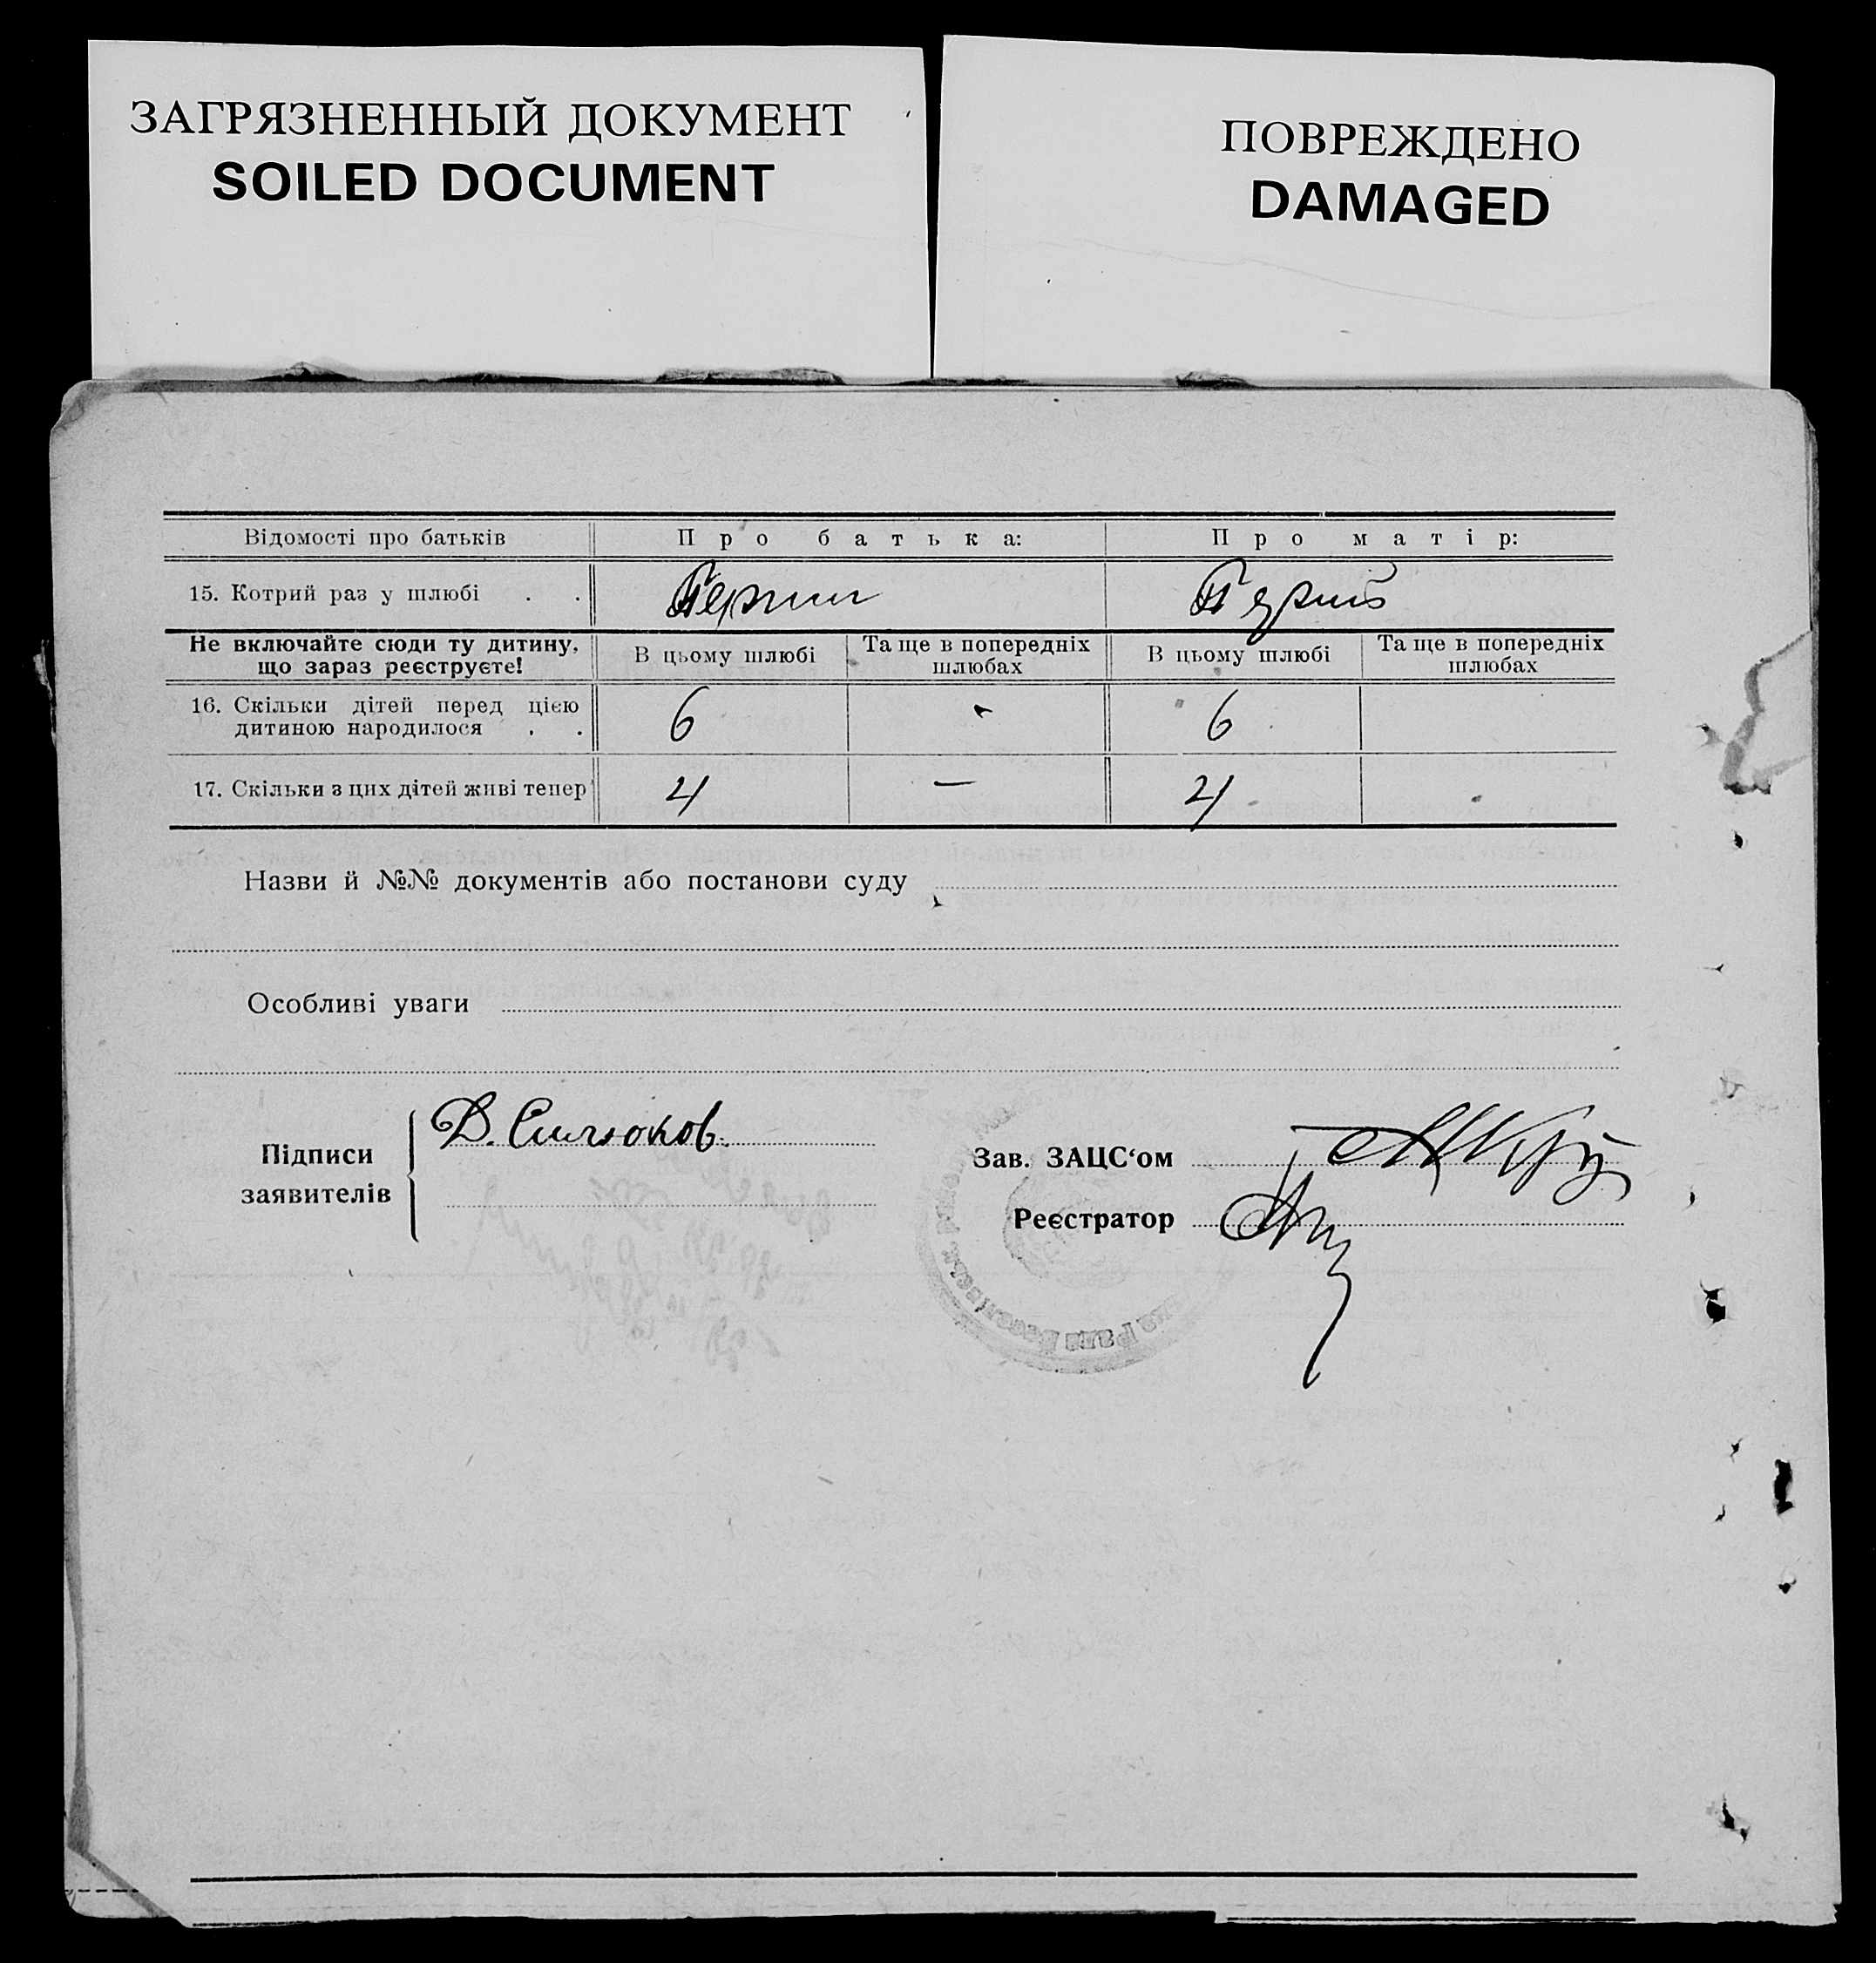 ЗАГРЯЗНЕННЫЙ ДОКУМЕНТ
SOILED DOCUMENT
ПОВРЕЖДЕНО
DAMAGED
Відомості про батьків Про батька: Про матір:
15. Котрий раз у шлюбі . .
Не включайте сюди ту дитину, що зараз реєструєте! В цьому шлюбі Та ще в попередніх шлюбах В цьому шлюбі Та ще в попередніх шлюбах
16. Скільки дітей перед цією
дитиною народилося . . 6 6
17. Скільки з цих дітей живі тепер 4 — 4
Назви й №№ документів або постанови суду
Особливі уваги
Підписи
заявителів
Д.
Зав. ЗАЦС‘ом
Реєстратор